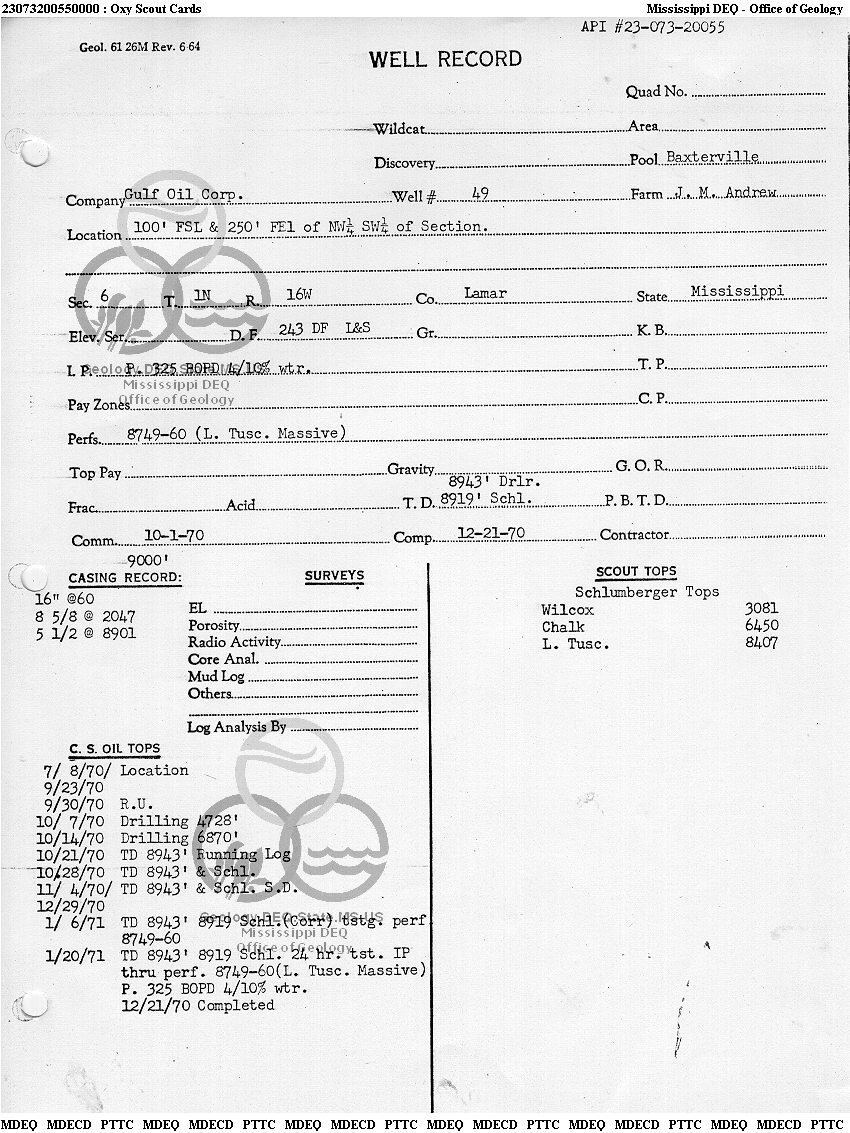 23073200550000 : Oxy Scout Cards Mississippi DEQ - Office of Geology
API #23-073-20055
Geol. 61 26M Rev. 6-64
WELL RECORD
Quad No.
Wildcat Area
Discovery Pool Baxterville
Company Gulf Oil Corp. Well # 49 Farm J. M. Andrew
Location 100' FSL & 250' FEl of NW¼ SW¼ of Section.
Sec. 6 T. 1N R. 16W Co. Lamar State Mississippi
Elev. Ser. D. F. 243 DF L&S Gr. K. B.
I. P. P. 325 BOPD 4/10% wtr. T. P.
Geology.DEQ.State.MS.US
Mississippi DEQ
Office of Geology
Pay Zones C. P.
Perfs. 8749-60 (L. Tusc. Massive)
Top Pay Gravity G. O. R.
8943' Drlr.
Frac. Acid T. D. 8919' Schl. P. B. T. D.
Comm. 10-1-70 Comp. 12-21-70 Contractor
9000'
CASING RECORD: SURVEYS SCOUT TOPS
Schlumberger Tops
16" @60
8 5/8 @ 2047
5 1/2 @ 8901
EL
Porosity
Radio Activity
Core Anal.
Mud Log
Others
Log Analysis By
Wilcox 3081
Chalk 6450
L. Tusc. 8407
C. S. OIL TOPS
7/ 8/70/ Location
9/23/70
9/30/70 R.U.
10/ 7/70 Drilling 4728'
10/14/70 Drilling 6870'
10/21/70 TD 8943' Running Log
10/28/70 TD 8943' & Schl.
11/ 4/70/ TD 8943' & Schl. S.D.
12/29/70
1/ 6/71 TD 8943' 8919 Schl.(Corr) tstg. perf
8749-60
1/20/71 TD 8943' 8919 Schl. 24 hr. tst. IP
thru perf. 8749-60(L. Tusc. Massive)
P. 325 BOPD 4/10% wtr.
12/21/70 Completed
Geology.DEQ.State.MS.US
Mississippi DEQ
Office of Geology
MDEQ MDECD PTTC MDEQ MDECD PTTC MDEQ MDECD PTTC MDEQ MDECD PTTC MDEQ MDECD PTTC MDEQ MDECD PTTC